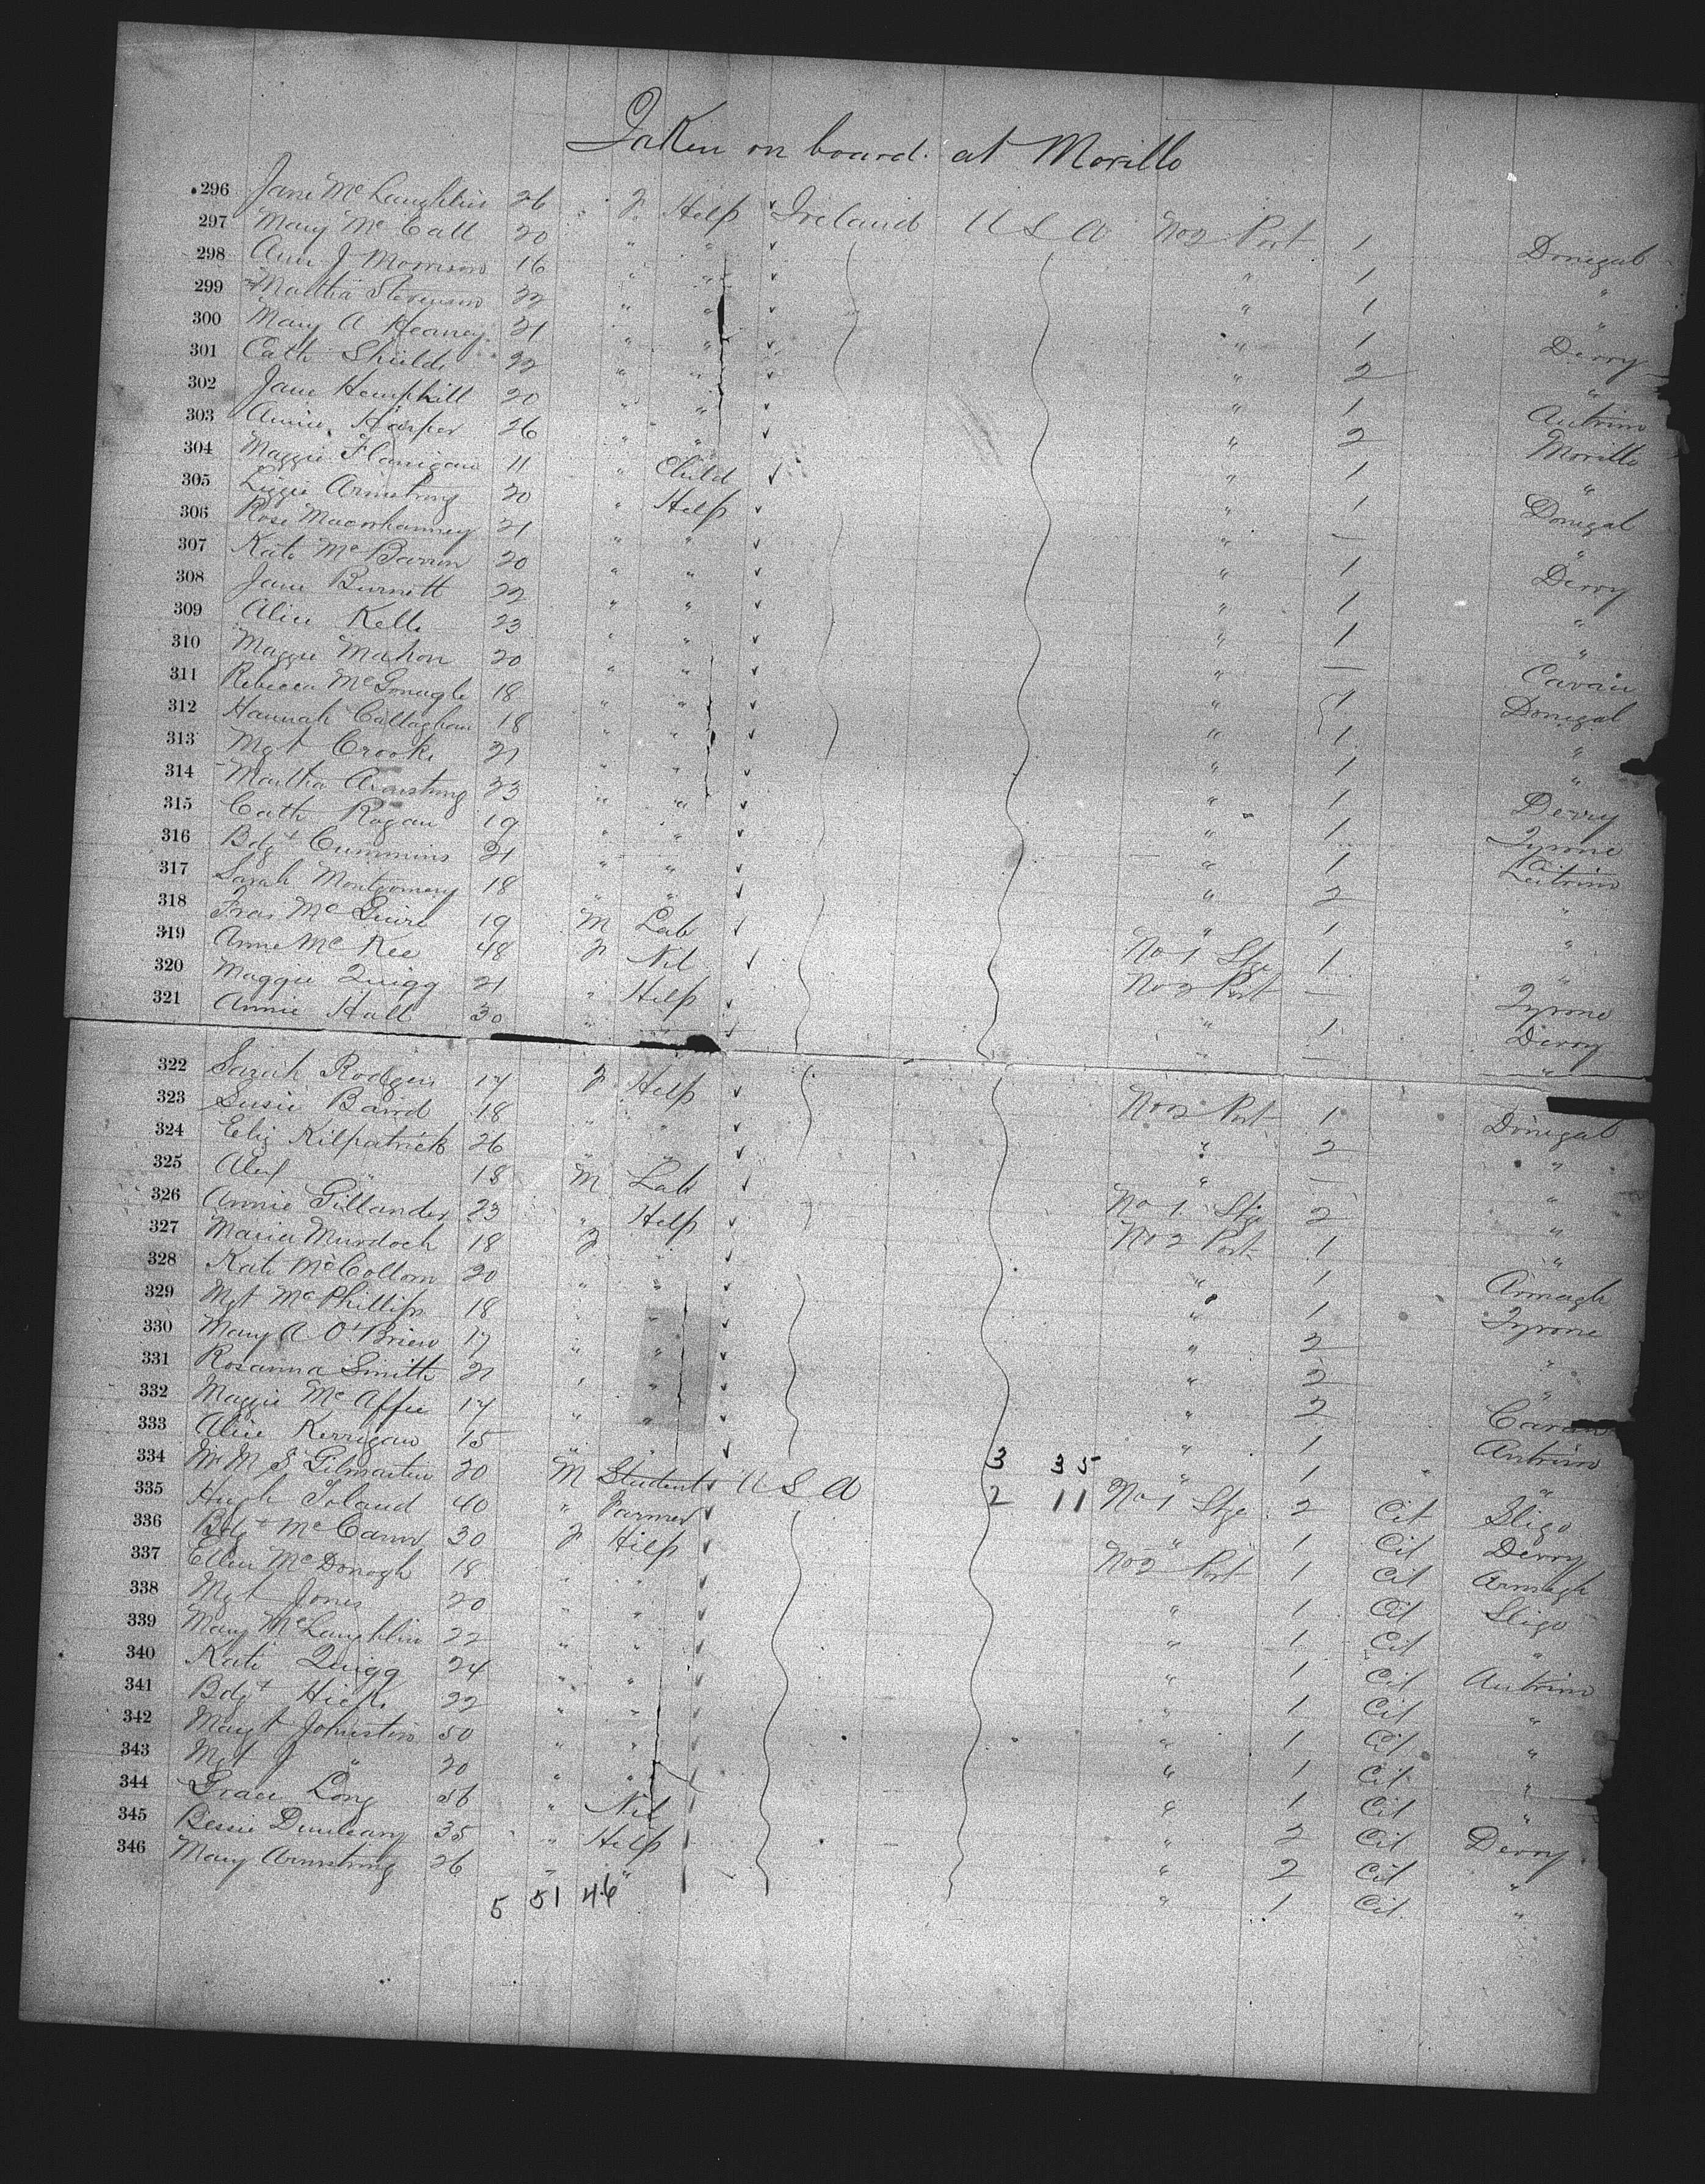 Taken on board at Moville
296 Jane McLaughlin 26 F Help Ireland U S A No 2 Port 1 Donegal
297 Mary McCall 20 " " " 1 "
298 Ann J Morrison 16 " " " 1 "
299 Martha Stevenson 22 " " " 1 Derry
300 Mary A Heaney 21 " " " 2 "
301 Cath Shields 22 " " " 1 Antrim
302 Jane Hemphill 20 " " " 2 Moville
303 Annie Harper 26 " " " 1 "
304 Maggie Flanigan 11 " Child " 1 Donegal
305 Lizzie Armstrong 20 " Help " — "
306 Rose 21 " " " 1 Derry
307 Kate Mc 20 " " " 1 "
308 Jane Burnett 22 " " " 1 "
309 Alice Kells 23 " " " — Cavan
310 Maggie Mahon 20 " " " 1 Donegal
311 Rebecca McGonagle 18 " " " 1 "
312 Hannah Callaghan 18 " " " 1 "
313 Mgt Crooks 21 " " " 1 Derry
314 Martha Armstrong 23 " " " 1 Tyrone
315 Cath Rogan 19 " " " 1 Leitrim
316 Bdgt Cummins 21 " " " 2 "
317 Sarah Montgomery 18 " " " 1 "
318 Fras McGuire 19 M Lab No 1 Stge 1 "
319 Anne McKee 48 F Nil No 2 Port — Tyrone
320 Maggie Quigg 21 " Help " 1 Derry
321 Annie Hall 30 " " " — "
322 Sarah Rodgers 17 F Help No 2 Port 1 Donegal
323 Susie Baird 18 " " " 2 "
324 Eliz Kilpatrick 26 " " " — "
325 Alex " 18 M Lab No 1 Stge 2 "
326 Annie Gillander 23 " Help No 2 Port 1 "
327 Maria Murdock 18 F " " 1 Armagh
328 Kate McCollom 20 " " " 1 Tyrone
329 Mgt McPhillips 18 " " " 2 "
330 Mary A O'Brien 17 " " " 2 "
331 Rosanna Smith 21 " " " 2 Cavan
332 Maggie McAffee 17 " " " 1 Antrim
333 Alice Kerrigan 15 " " " 1 "
3 35
334 Wm S Gilmartin 20 M Student U S A No 1 Stge 2 Cit Sligo
2 11
335 Hugh Toland 40 " Farmer " 1 Cit Derry
336 Bdgt McCann 30 F Help No 2 Port 1 Cit Armagh
337 Ellen McDonogh 18 " " " 1 Cit Sligo
338 Mgt Jones 20 " " " 1 Cit "
339 Mary McLaughlin 22 " " " 1 Cit Antrim
340 Kate Quigg 24 " " " 1 Cit "
341 Bdgt Hicks 22 " " " 1 Cit "
342 Magt Johnston 50 " " " 1 Cit "
343 Mgt J " 20 " " " 1 Cit "
344 Grace Long 56 " Nil " 2 Cit Derry
345 Bessie Dunleavy 35 " Help " 2 Cit "
346 Mary Armstrong 26 " " " 1 Cit "
5 51 46